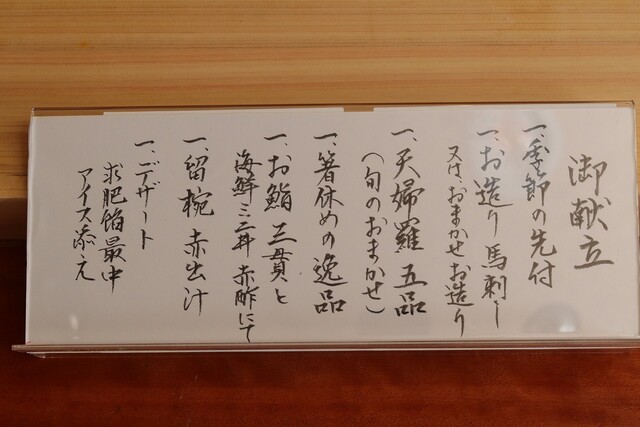 御献立
一、季節の先付
一、お造り 馬刺し
又は、おまかせお造り
一、天婦羅 五品
(旬のおまかせ)
一、箸休めの逸品
一、お鮨 三貫と
海鮮ミニ丼 赤酢にて
一、留椀 赤出汁
一、デザート
求肥餡最中
アイス添え